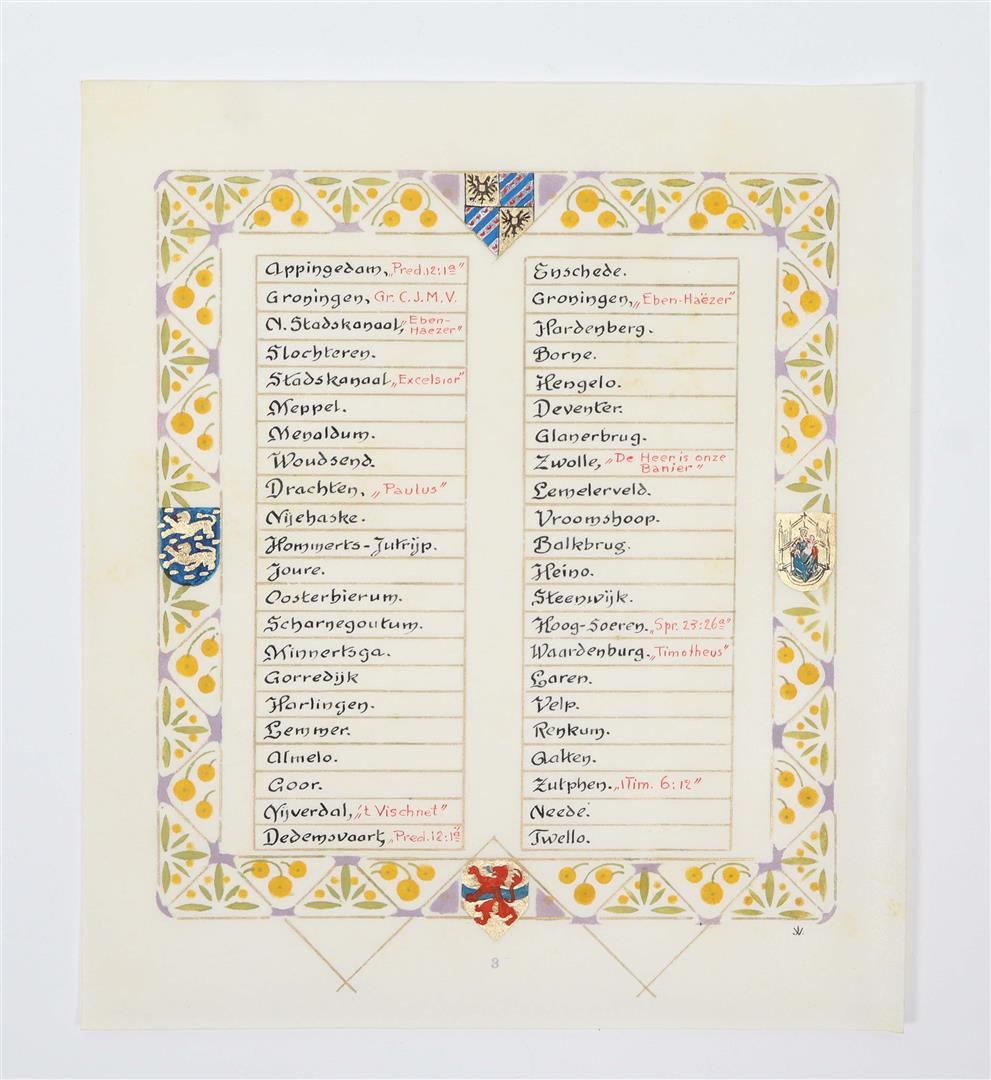 Appingedam, „Pred. 12:1a”
Groningen, Gr. C.J.M.V.
N. Stadskanaal, „Eben-
Haezer”
Slochteren.
Stadskanaal „Excelsior”
Meppel.
Menaldum.
Woudsend.
Drachten, „Paulus”
Nijehaske.
Hommerts-Jutrijp.
Joure.
Oosterbierum.
Scharnegoutum.
Minnertsga.
Gorredijk
Harlingen.
Lemmer.
Almelo.
Goor.
Nijverdal, „'t Vischnet”
Dedemsvaart, „Pred. 12:1a”
Enschede.
Groningen, „Eben-Haëzer”
Hardenberg.
Borne.
Hengelo.
Deventer.
Glanerbrug.
Zwolle, „De Heer is onze
Banier”
Lemelerveld.
Vroomshoop.
Balkbrug.
Heino.
Steenwijk.
Hoog-Soeren. „Spr. 23:26a”
Waardenburg. „Timotheus”
Laren.
Velp.
Renkum.
Aalten.
Zutphen. „1 Tim. 6:12”
Neede.
Twello.
3